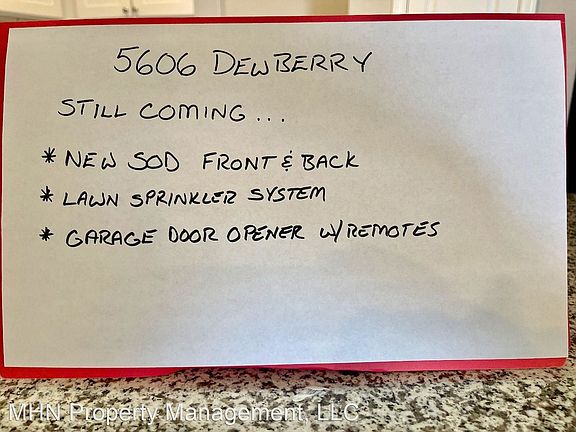 5606 DEWBERRY
STILL COMING...
* NEW SOD FRONT & BACK
* LAWN SPRINKLER SYSTEM
* GARAGE DOOR OPENER W/REMOTES
MHN Property Management, LLC